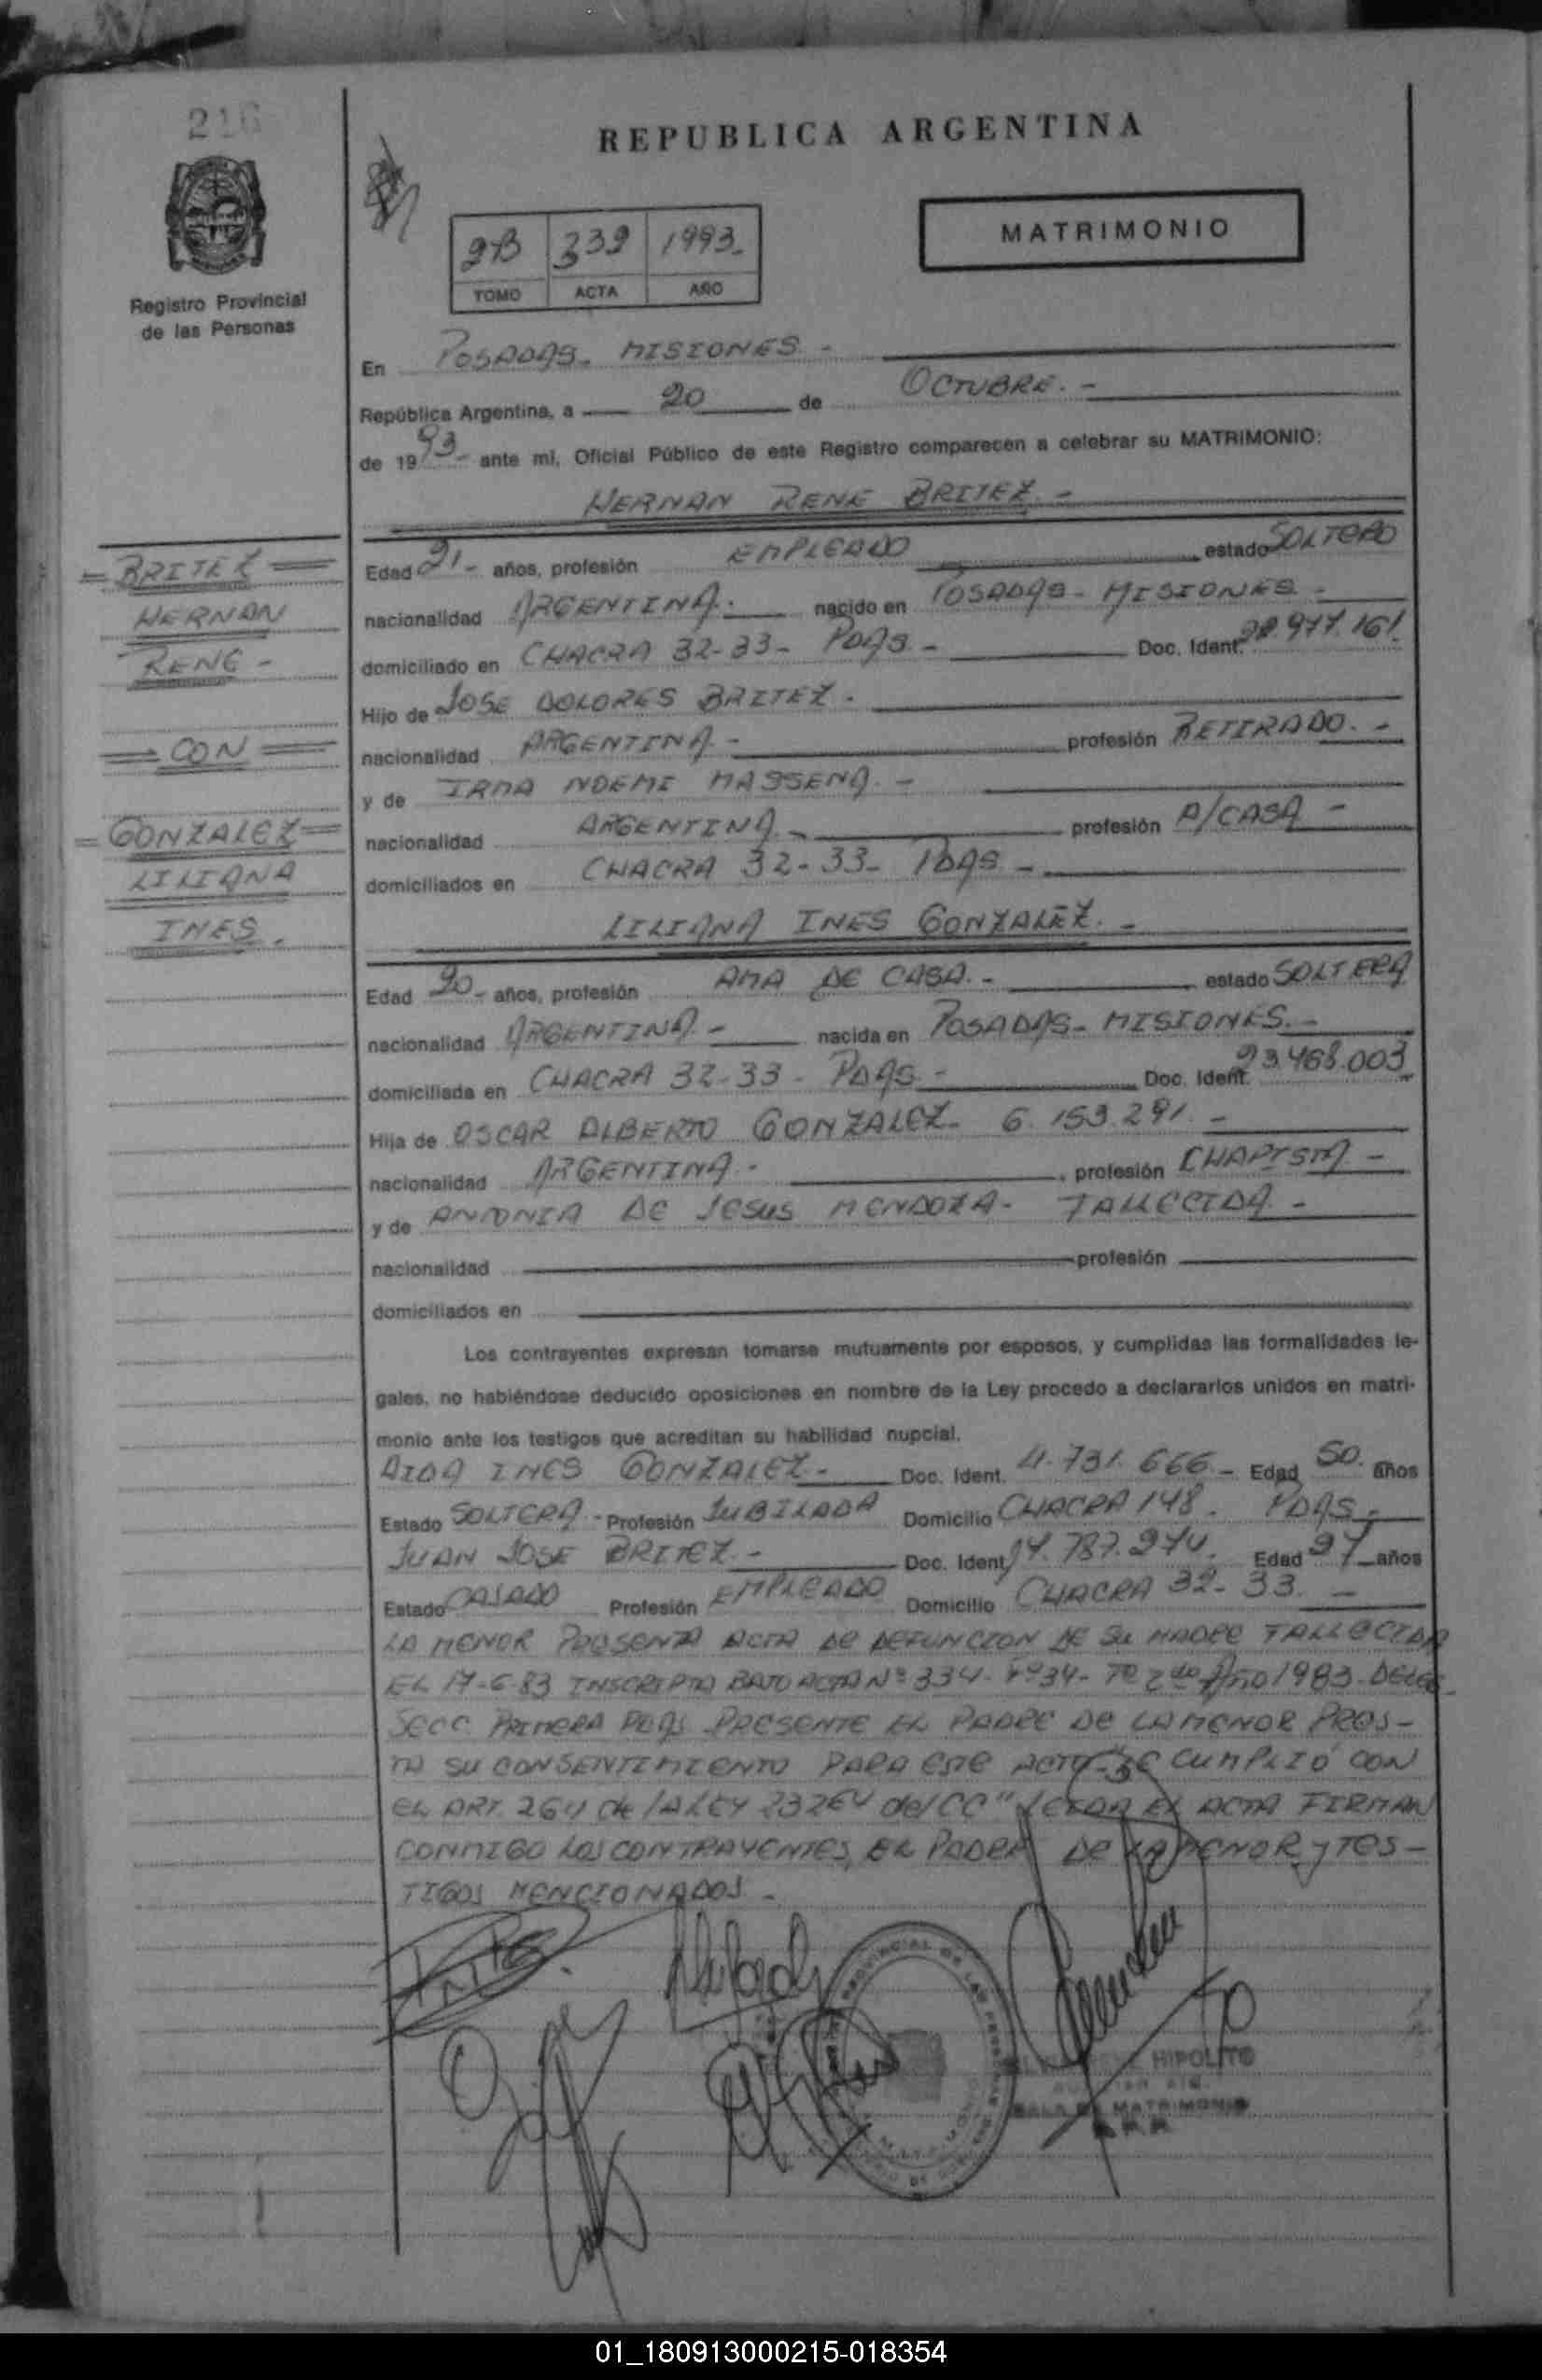 216
REPUBLICA ARGENTINA
MATRIMONIO
2B 339 1993.
TOMO ACTA AÑO
Registro Provincial
de las Personas
En POSADAS - MISIONES -
República Argentina, a 20 de OCTUBRE. -
de 1993- ante mí, Oficial Público de este Registro comparecen a celebrar su MATRIMONIO:
HERNAN RENE BRITEZ. -
= BRITEZ =
HERNAN
RENE -
= CON =
= GONZALEZ =
LILIANA
INES.
Edad 21- años, profesión EMPLEADO estado SOLTERO
nacionalidad ARGENTINA. nacido en POSADAS - MISIONES -
domiciliado en CHACRA 32-33- PDAS - Doc. Ident. 22.977.161
Hijo de JOSE DOLORES BRITEZ -
nacionalidad ARGENTINA - profesión RETIRADO. -
y de IRMA NOEMI MASSENA. -
nacionalidad ARGENTINA - profesión A/CASA -
domiciliados en CHACRA 32-33- PDAS -
LILIANA INES GONZALEZ. -
Edad 20- años, profesión AMA DE CASA. - estado SOLTERA
nacionalidad ARGENTINA - nacida en POSADAS - MISIONES. -
domiciliada en CHACRA 32-33 - PDAS - Doc. Ident. 23.468.003
Hija de OSCAR ALBERTO GONZALEZ - 6.153.291. -
nacionalidad ARGENTINA - , profesión CHAPISTA -
y de ANTONIA DE JESUS MENDOZA - FALLECIDA -
nacionalidad profesión
domiciliados en
Los contrayentes expresan tomarse mutuamente por esposos, y cumplidas las formalidades le-
gales, no habiéndose deducido oposiciones en nombre de la Ley procedo a declararlos unidos en matri-
monio ante los testigos que acreditan su habilidad nupcial.
AIDA INES GONZALEZ - Doc. Ident. 4.731.666 - Edad 50. años
Estado SOLTERA - Profesión JUBILADA Domicilio CHACRA 148. PDAS -
JUAN JOSE BRITEZ - Doc. Ident. 14.787.974. Edad 27 años
Estado CASADO Profesión EMPLEADO Domicilio CHACRA 32-33. -
LA MENOR PRESENTA ACTA DE DEFUNCION DE SU MADRE FALLECIDA
EL 17-6-83 INSCRIPTA BAJO ACTA Nº 334- Fº 34- Tº 2do Año 1983- DELEG.
SECC. PRIMERA PDAS. PRESENTE EL PADRE DE LA MENOR PRES-
TA SU CONSENTIMIENTO PARA ESTE ACTO - SE CUMPLIÓ CON
EL ART. 264 de LA LEY 23264 del CC" LEIDA EL ACTA FIRMAN
CONMIGO LOS CONTRAYENTES, EL PADRE DE LA MENOR y TES-
TIGOS MENCIONADOS -
HIPOLITO
SALA DE MATRIMONIO
01_180913000215-018354